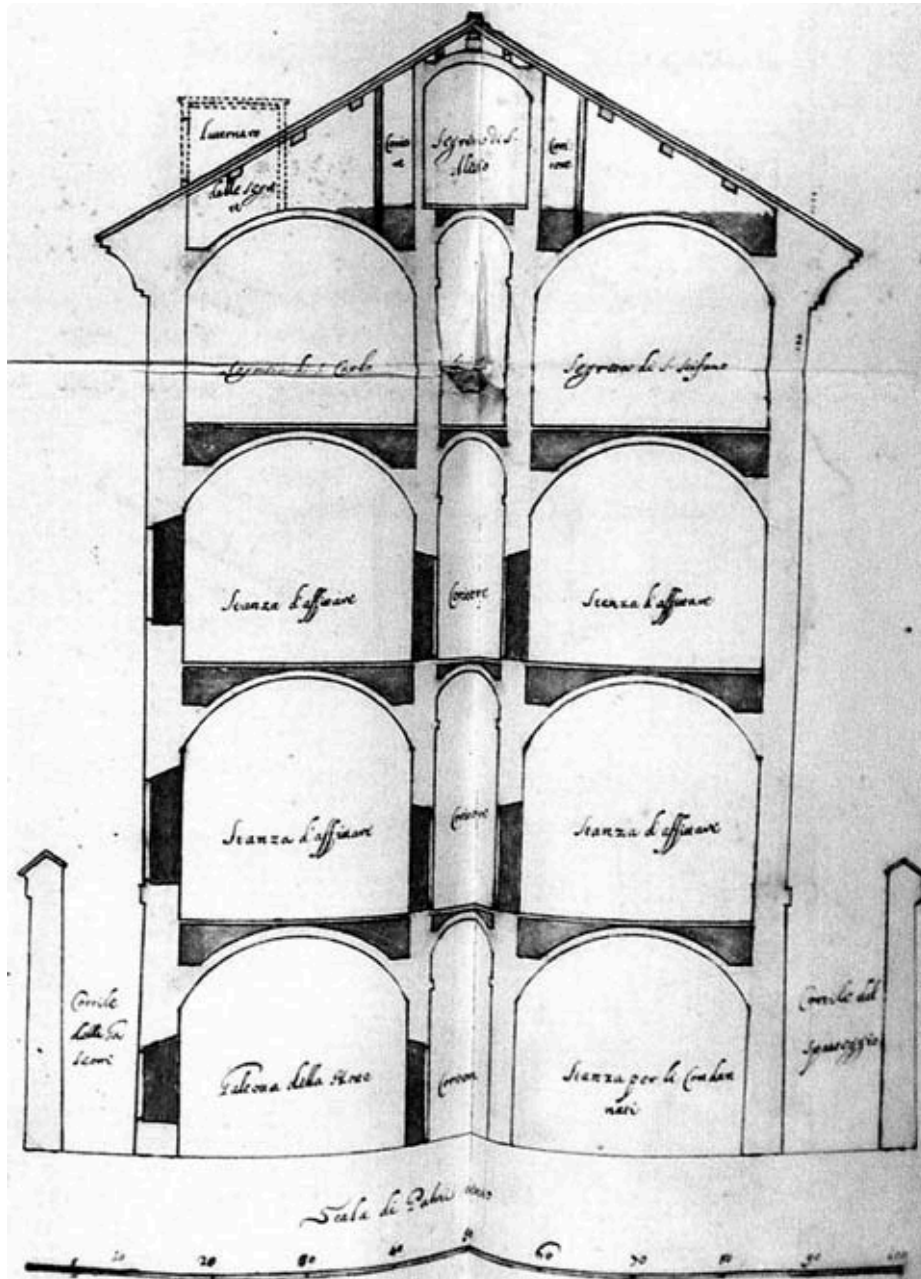 Lucernaro
delle Segre
te
Corri
Segreta di S.
Alesio
Corri
tore
Segreta di S. Carlo
Segreta di S. Stefano
Stanza d'affittare
Coritore
Stanza d'affittare
Stanza d'affittare
Coritore
Stanza d'affittare
Cortile
Galeona della Noce
Stanza per li Condan
nati
Cortile del
Spasseggio
Scala di Palmi
10 20 30 40 50 60 70 80 90 100